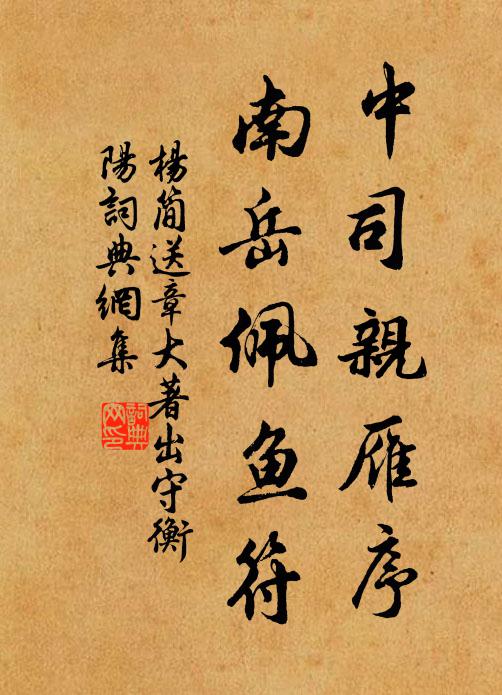 中司親雁序
南岳佩鱼符
楊简送章大著出守衡
陽詞典網集
詞典
网印